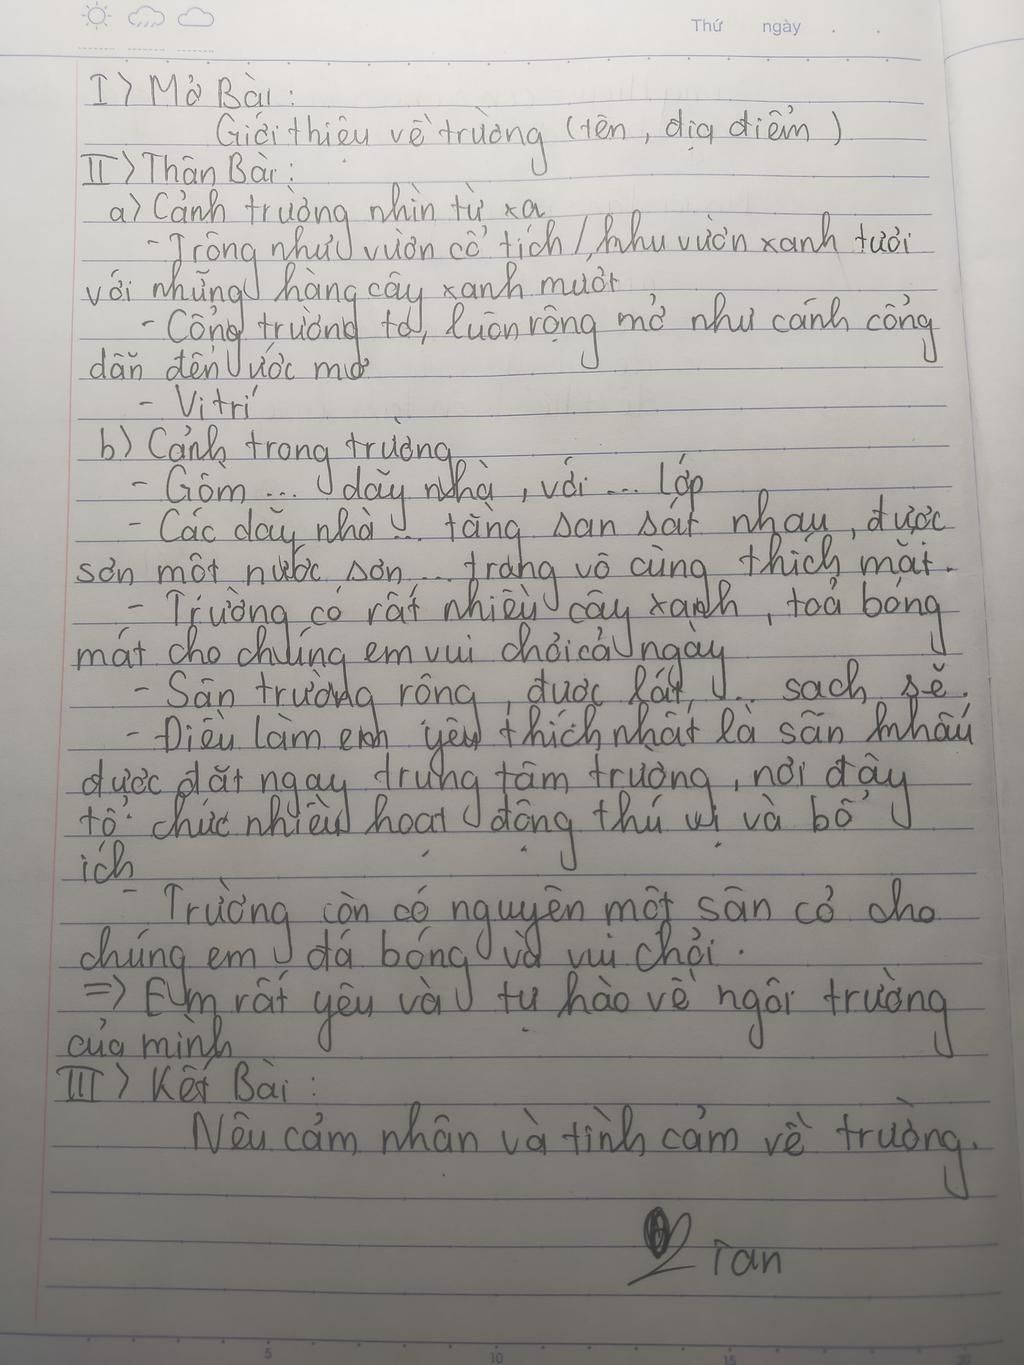 Thứ ngày . .
I> Mở Bài:
Giới thiệu về trường (tên, địa điểm)
II> Thân Bài:
a) Cảnh trường nhìn từ xa
- Trông như vườn cổ tích / khu vườn xanh tươi
với những hàng cây xanh mướt
- Cổng trường to, luôn rộng mở như cánh cổng
dẫn đến ước mơ
- Vị trí
b) Cảnh trong trường
- Gồm ... dãy nhà, với ... lớp
- Các dãy nhà ... tầng san sát nhau, được
sơn một nước sơn ... trông vô cùng thích mắt.
- Trường có rất nhiều cây xanh, toả bóng
mát cho chúng em vui chơi cả ngày
- Sân trường rộng, được lát, ... sạch sẽ.
- Điều làm em yêu thích nhất là sân khấu
được đặt ngay trung tâm trường, nơi đây
tổ chức nhiều hoạt động thú vị và bổ
ích
- Trường còn có nguyên một sân cỏ cho
chúng em đá bóng và vui chơi.
=> Em rất yêu và tự hào về ngôi trường
của mình
III> Kết Bài:
Nêu cảm nhận và tình cảm về trường.
5 10 15 20